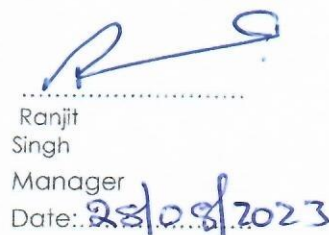 Ranjit
Singh
Manager
Date: 28/08/2023